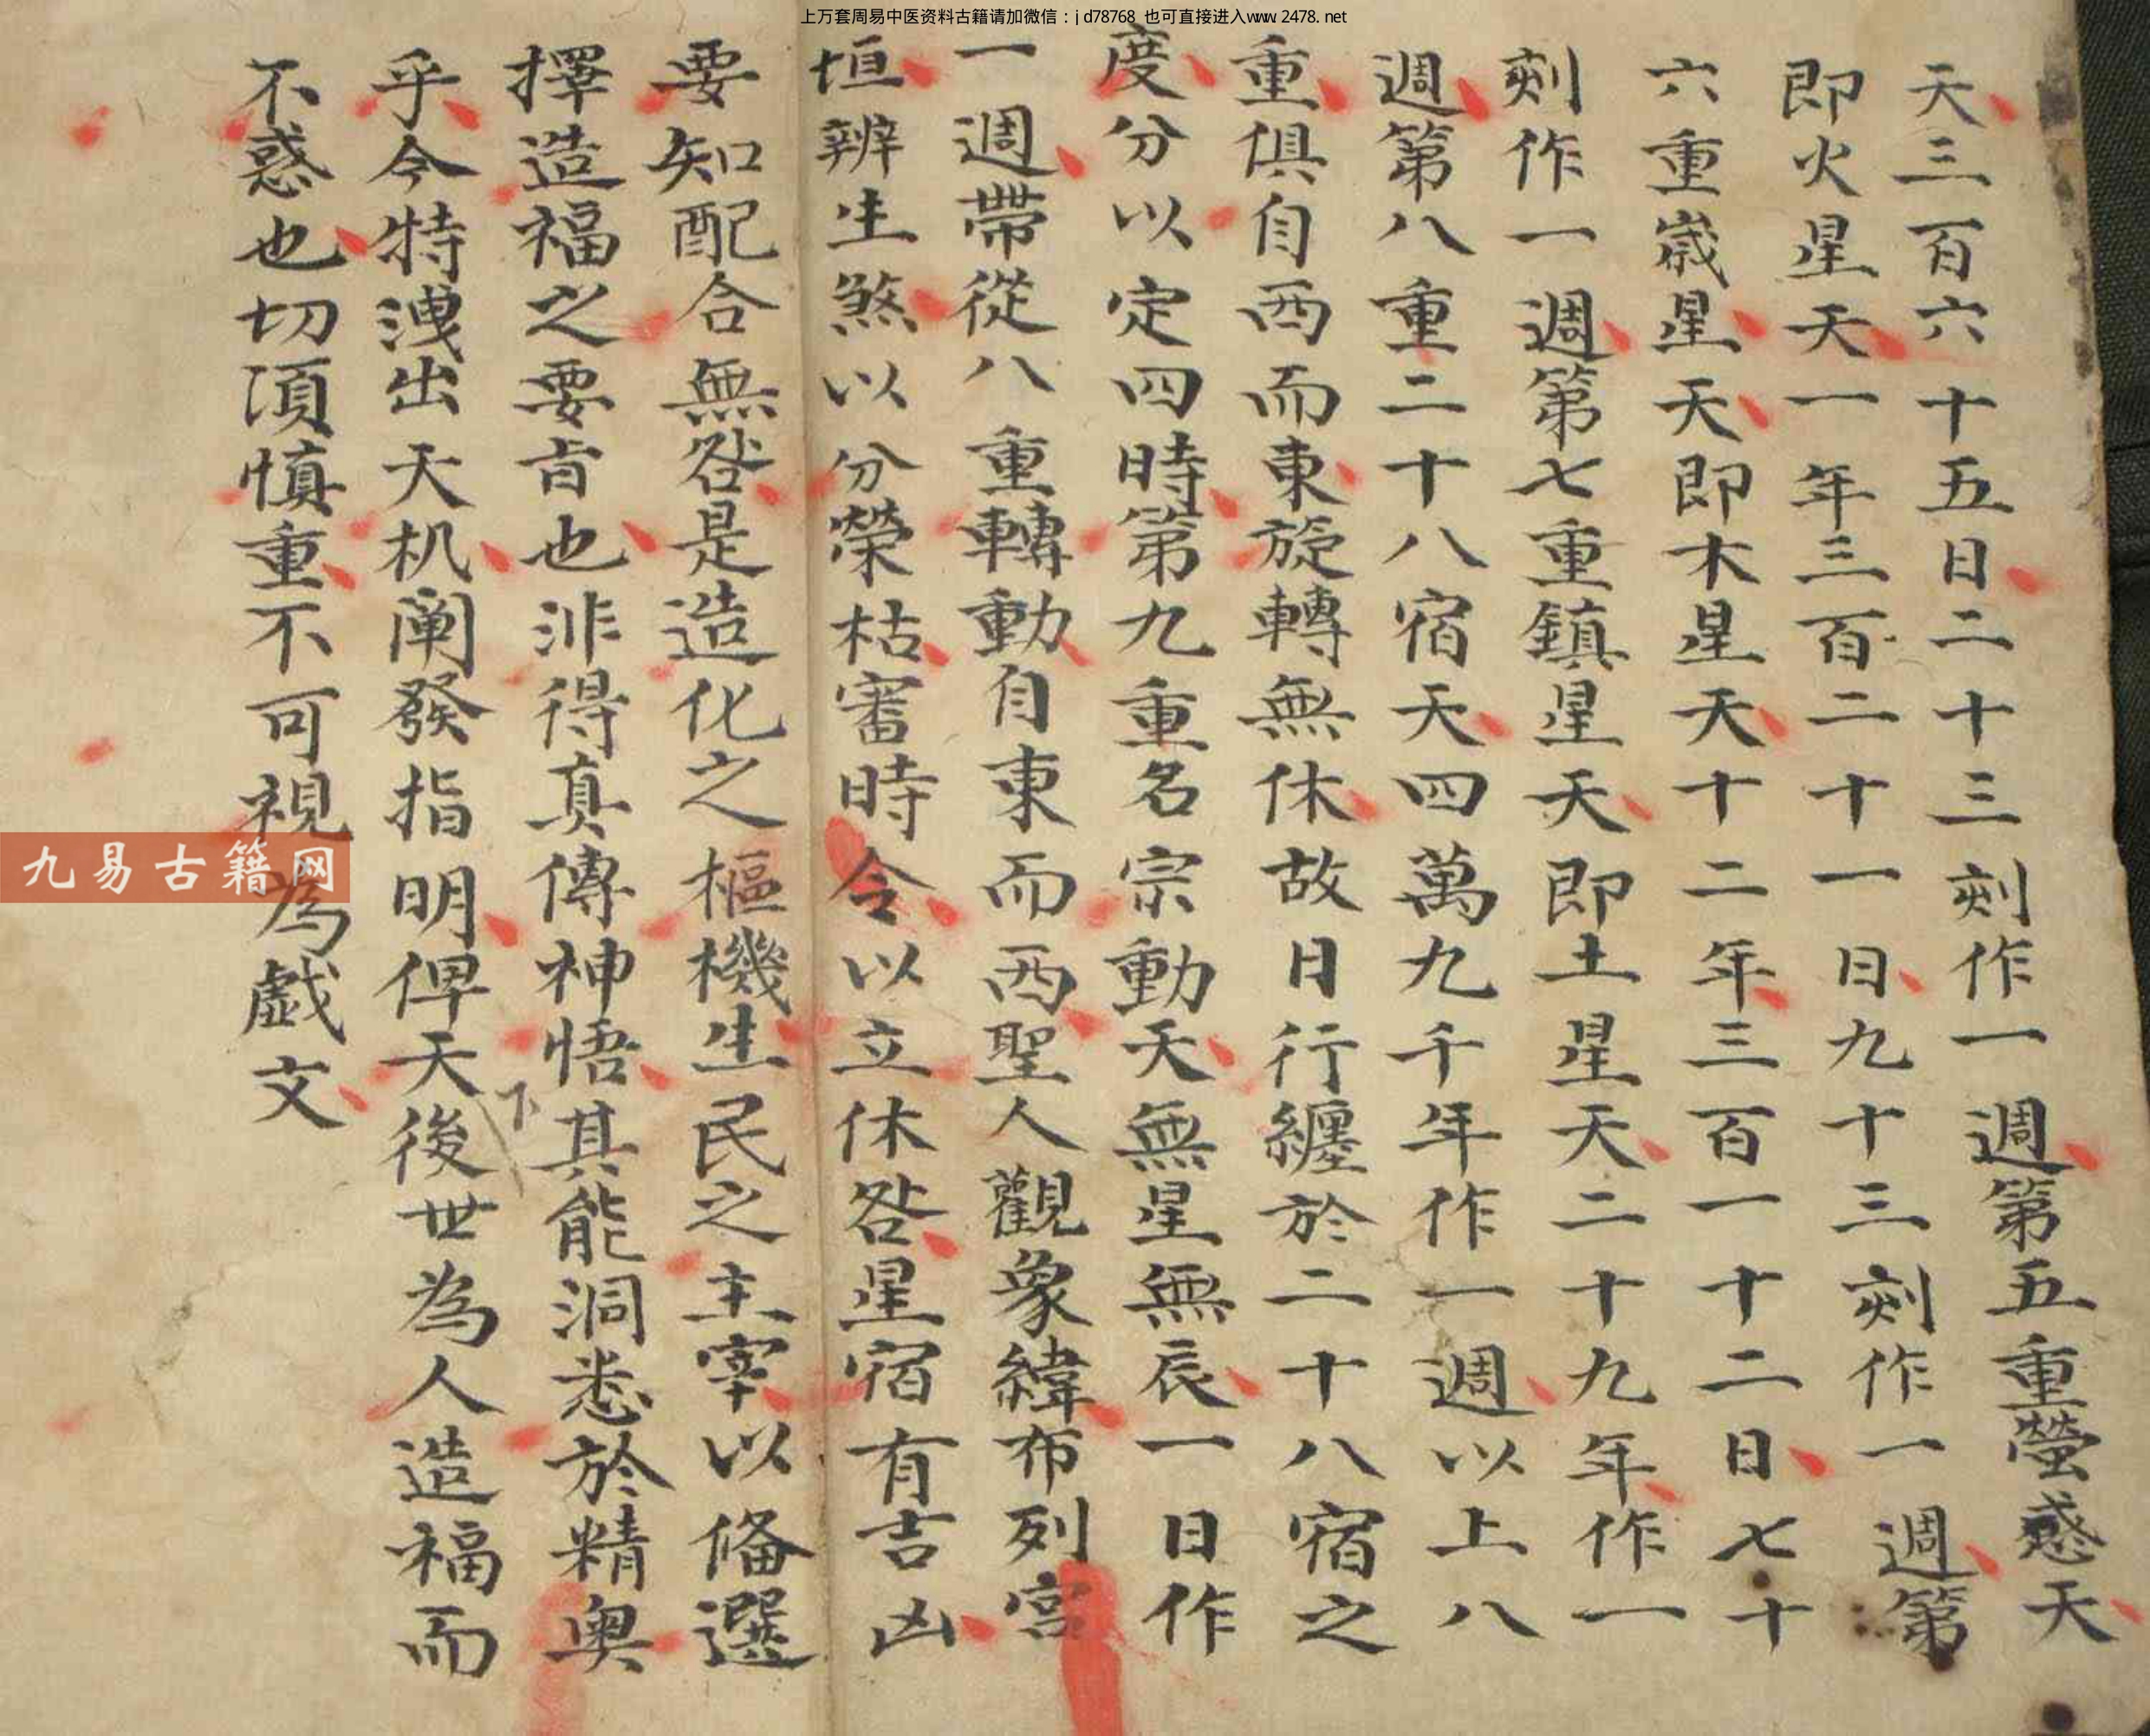 上万套周易中医资料古籍请加微信：jd78768 也可直接进入www.2478.net
天三百六十五日二十三刻作一週第五重螢惑天
即火星天一年三百二十一日九十三刻作一週第
六重嵗星天即木星天十二年三百一十二日七十
刻作一週第七重鎮星天即土星天二十九年作一
週第八重二十八宿天四萬九千年作一週以上八
重俱自西而東旋轉無休故日行纏於二十八宿之
度分以定四時第九重名宗動天無星無辰一日作
一週帶從八重轉動自東而西聖人觀象緯布列宮
垣辨生煞以分榮枯審時令以立休咎星宿有吉凶
要知配合無咎是造化之樞機生民之主宰以俻選
擇造福之要旨也非得真傳神悟其能洞悉於精奧
乎今特洩出天机阐發指明俾天下後世為人造福而
不惑也切須慎重不可視為戯文
九易古籍网